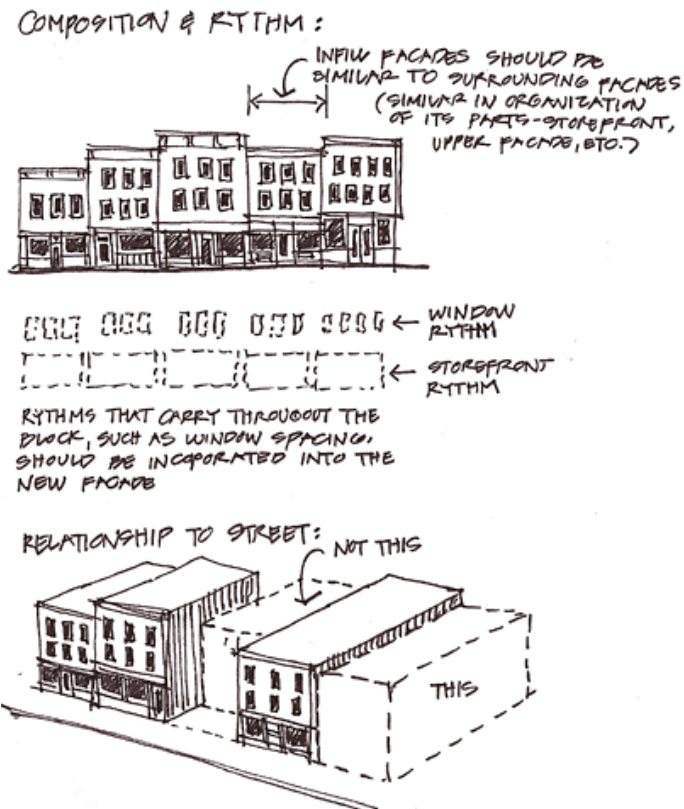 COMPOSITION & RYTHM:
INFILL FACADES SHOULD BE
SIMILAR TO SURROUNDING FACADES
(SIMILAR IN ORGANIZATION
OF ITS PARTS-STOREFRONT,
UPPER FACADE, ETC.)
WINDOW
RYTHM
STOREFRONT
RYTHM
RYTHMS THAT CARRY THROUGOUT THE
BLOCK, SUCH AS WINDOW SPACING,
SHOULD BE INCOPORATED INTO THE
NEW FACADE
RELATIONSHIP TO STREET:
NOT THIS
THIS